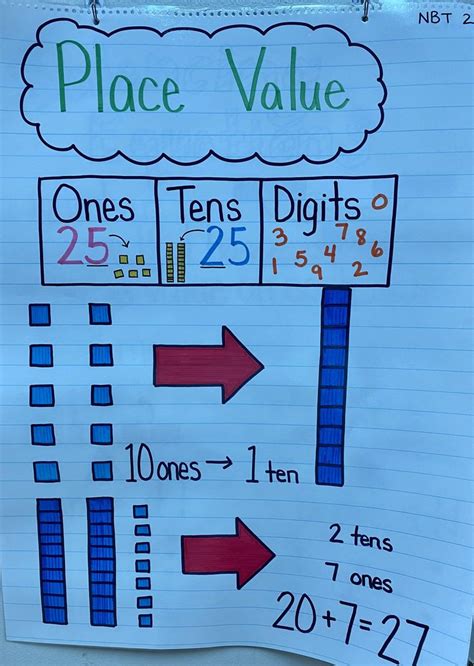 NBT 2
Place Value
Ones Tens Digits
25 25
0
3 7 8
1 5 4 6
9 2
10 ones → 1 ten
2 tens
7 ones
20+7=27